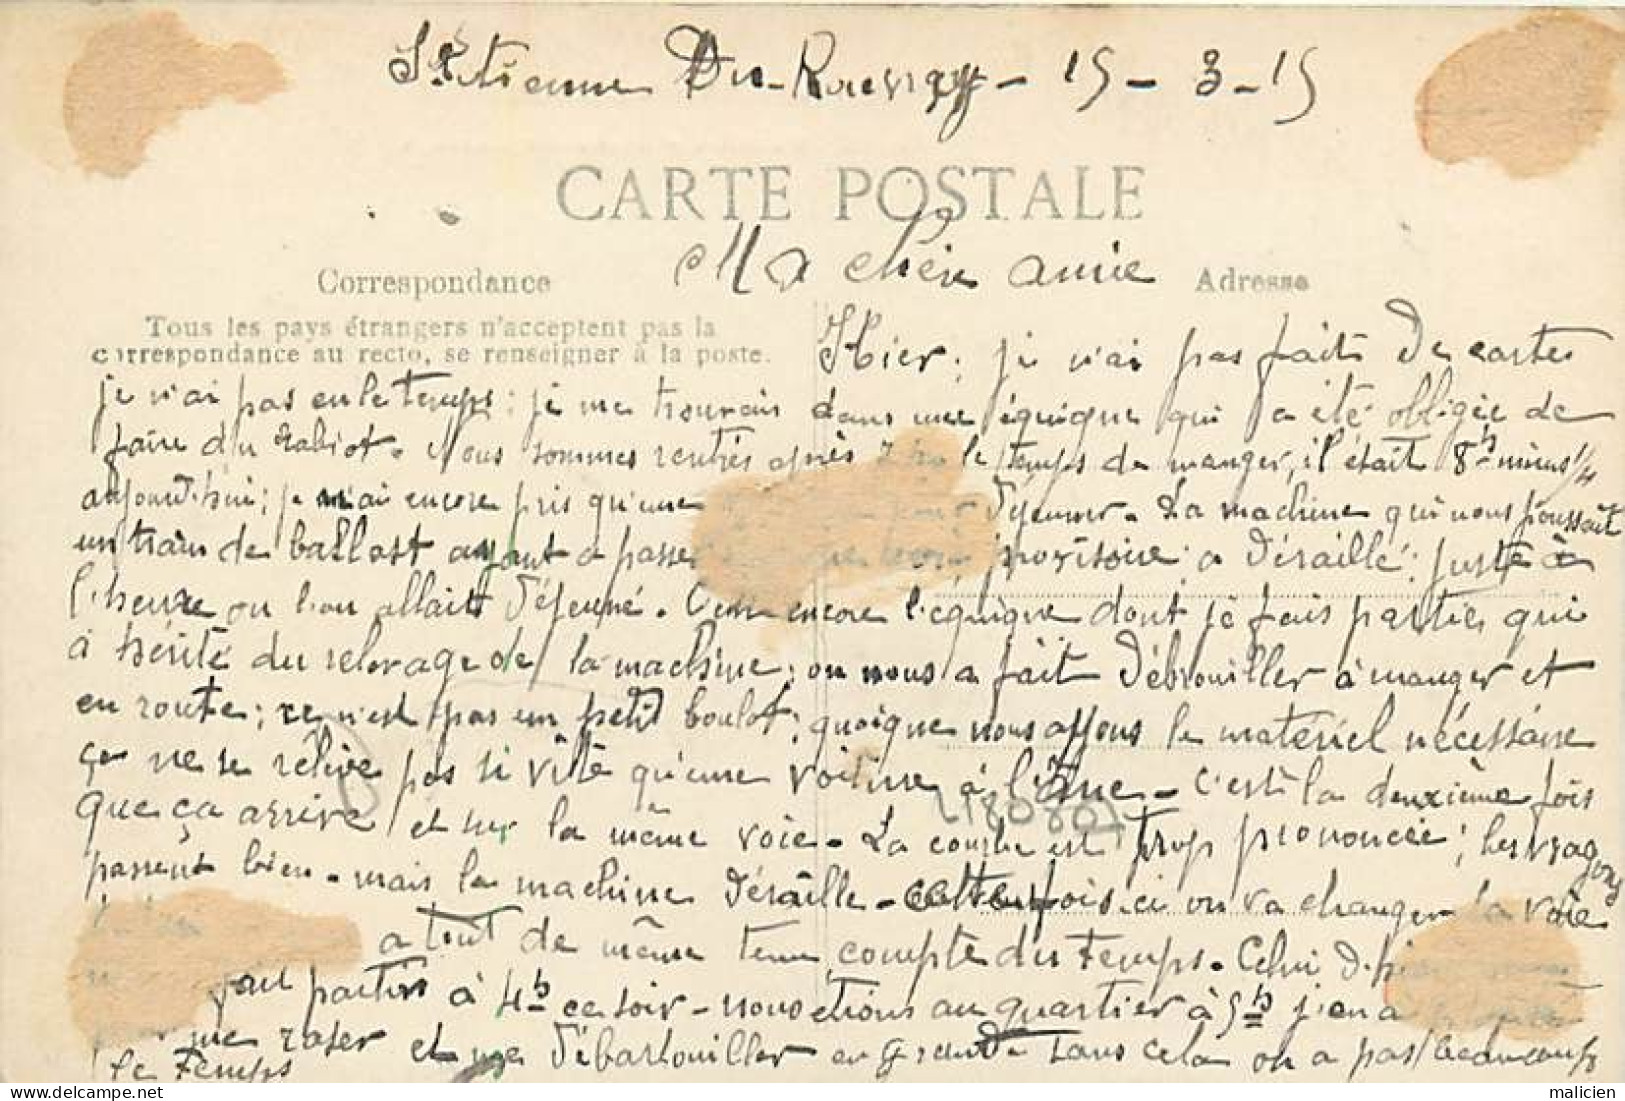 St Etienne Du-Rouvray - 15 - 3 - 15
CARTE POSTALE
Ma chère amie
Correspondance
Adresse
Tous les pays étrangers n'acceptent pas la
correspondance au recto, se renseigner à la poste.
Hier, je n'ai pas fait de carte
je n'ai pas eu le temps ; je me trouvais dans une équique qui a été obligée de
faire du rabiot. Nous sommes rentrés après le temps de manger, il était 8h moins 1/4
aujourd'hui ; je n'ai encore pris qu'une déjeuner. La machine qui nous poussait
un train de ballast ayant à passer voie provisoire a déraillé : juste à
l'heure ou l'on allait déjeuné. encore l'équique dont je fais partie, qui
à hérité du relevage de la machine ; on nous a fait débrouiller à manger et
en route ; ce n'est pas un petit boulot ; quoique nous ayons le matériel nécéssaire
ça ne se relève pas si vite qu'une voiture à l'âne - c'est la deuxième fois
2180807
que ça arrive et sur la même voie. La courbe est trop prononcée ; les wagons
passent bien - mais la machine déraille - cette fois-ci on va changer la voie
a tout de même tenu compte du temps. Celui d'hier
fait partir à 4h ce soir - nous étions au quartier à 5h j'en a
me raser et me débarbouiller en grande sans cela on a pas beaucoup
le temps
malicien